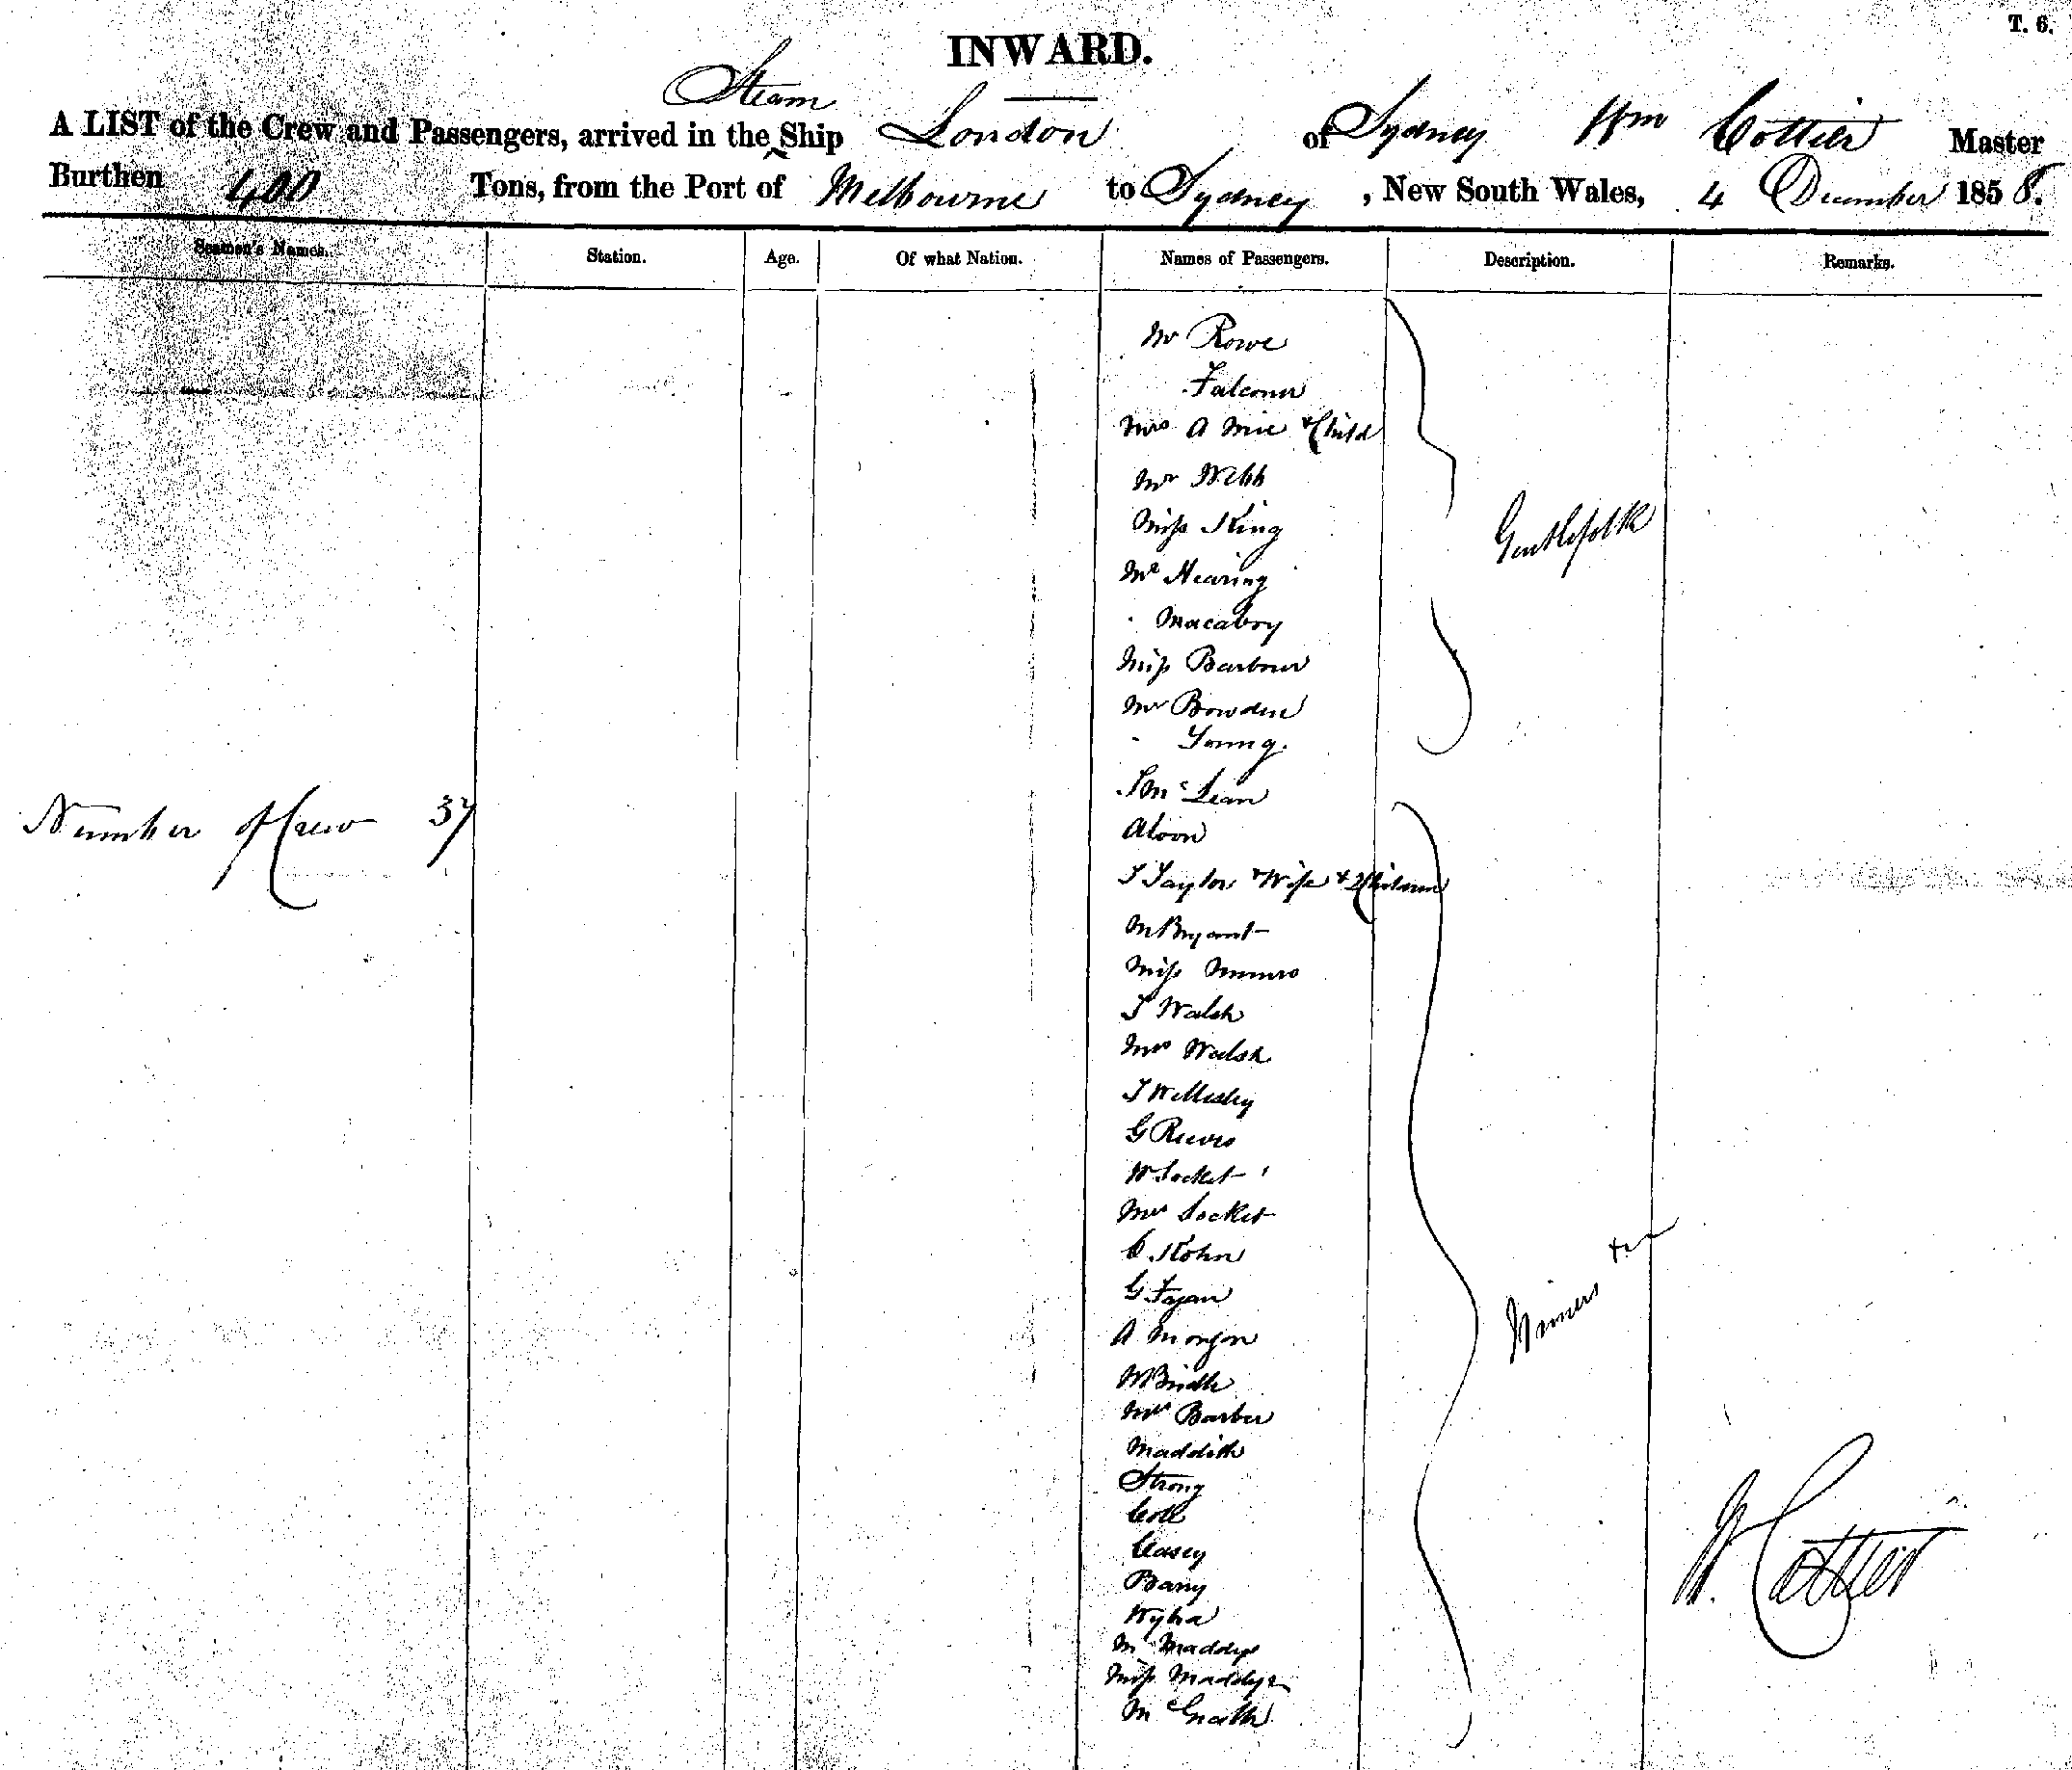 T. 6.
INWARD.
Steam
A LIST of the Crew and Passengers, arrived in the ^ Ship London of Sydney Wm Cottier Master
Burthen 400 Tons, from the Port of Melbourne to Sydney, New South Wales, 4 December 1858.
Seamen's Names. Station. Age. Of what Nation. Names of Passengers. Description. Remarks.
Mr Rowe
Falconer
Mrs A & Child
Mr Webb
Miss King
Gentlefolk
Mr Hearing
Macaboy
Miss Barbour
Mr Bowden
Young.
McLean
Number of Crew 37
Aloon
T Taylor & Wife & 2 Children
M Bryant
Miss Munro
T Walsh
Mrs Walsh
T Wellesley
G Reeves
W Socket
Mrs Socket
C Kohn
G Fagan
A Morgan
Miners &c
W Bindle
Mrs Barber
Maddith
Strong
Cole
Casey
Barry
W. Cottier
Mr
Miss